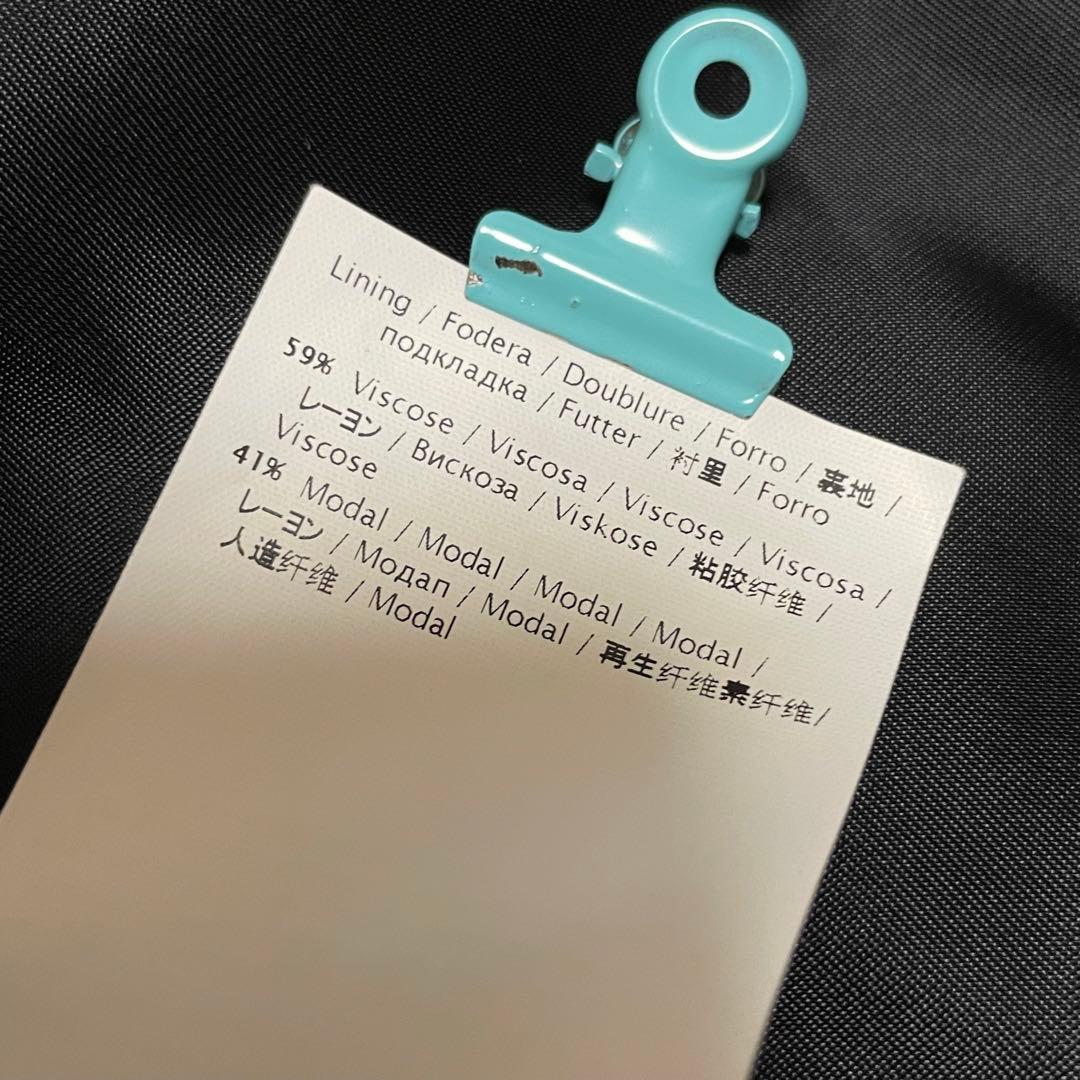 Lining / Fodera / Doublure / Forro / 裏地 /
подкладка / Futter / 衬里 / Forro
59% Viscose / Viscosa / Viscose / Viscosa /
レーヨン / Вискоза / Viskose / 粘胶纤维 /
Viscose
41% Modal / Modal / Modal / Modal /
レーヨン / Модал / Modal / 再生纤维素纤维/
人造纤维 / Modal